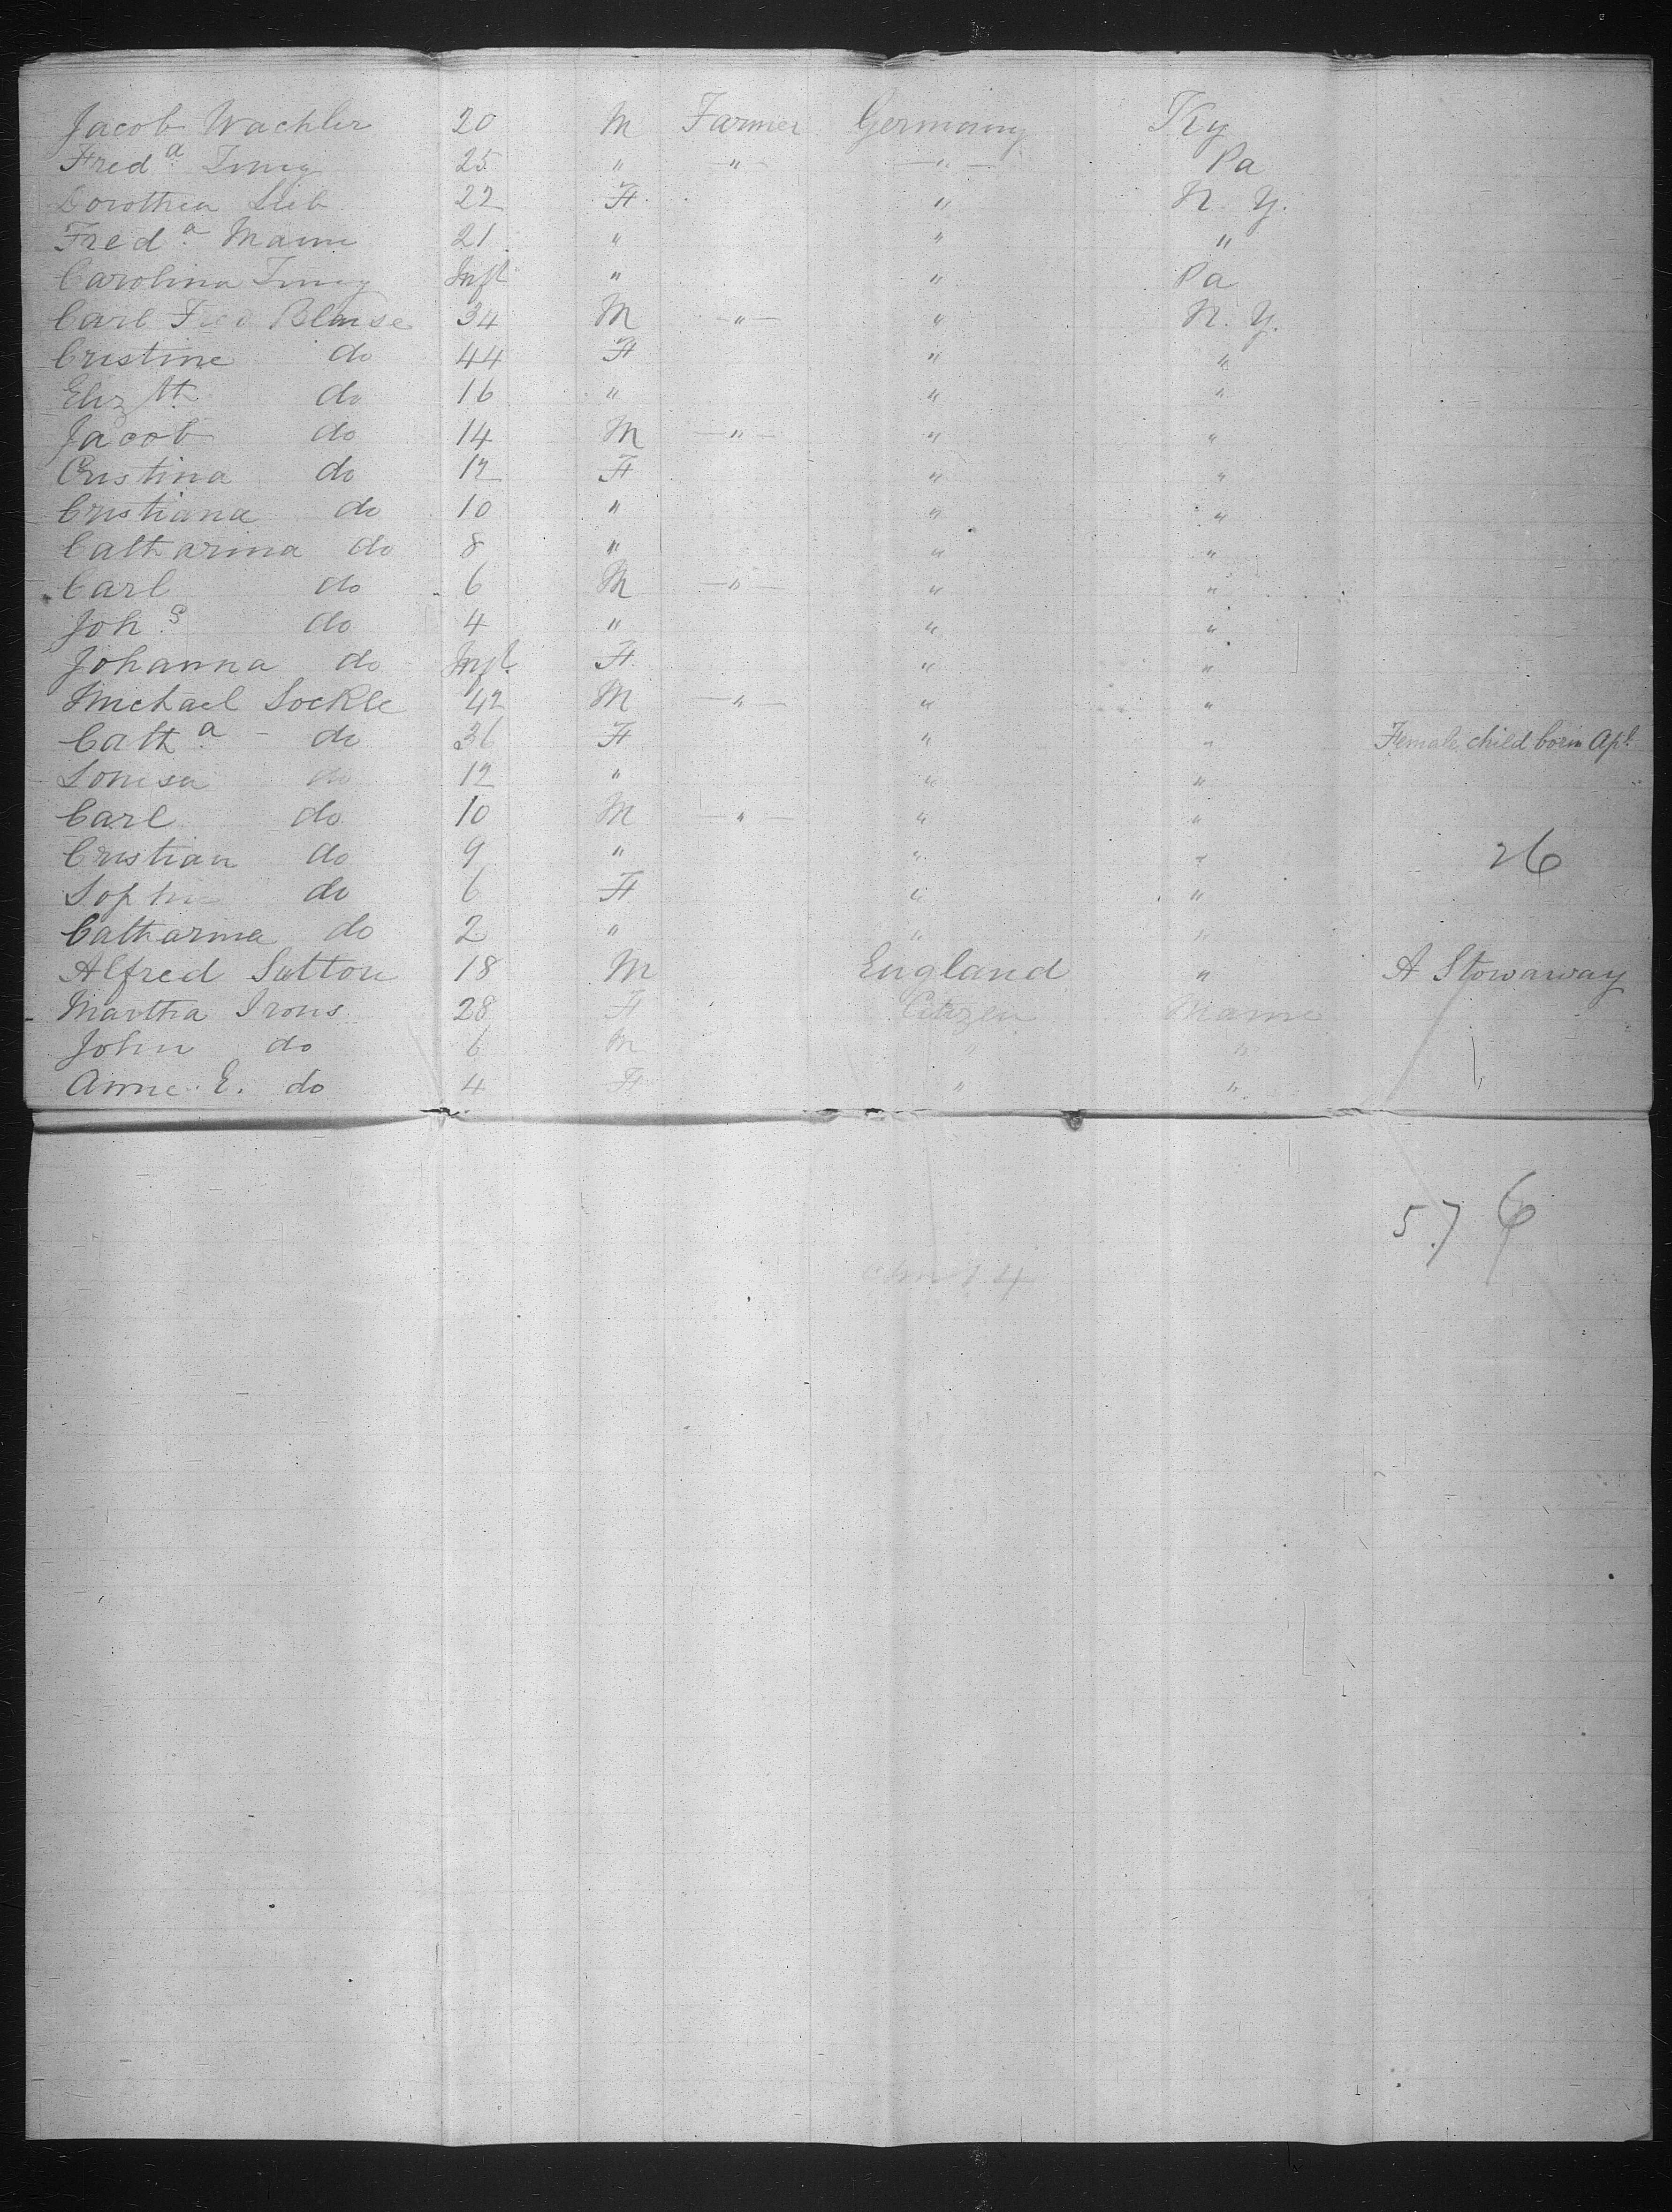 Jacob Wachler 20 M Farmer Germany Ky
Fred.a 25 " — " — — " — Pa
Dorothea Lieb 22 F " N. Y.
Fred.a Mann 21 " " "
Carolina Inft " " Pa
Carl Fred Blaise 34 M — " — " N. Y.
Cristine do 44 F " "
Eliz.th do 16 " " "
Jacob do 14 M — " — " "
Cristina do 12 F " "
Cristiana do 10 " " "
Catharina do 8 " " "
Carl do 6 M — " — " "
Joh.s do 4 " " "
Johanna do Inft. F " "
Michael Sockle 42 M — " — " "
Cath.a do 36 F " " Female child born Apl.
Louisa do 12 " " "
Carl do 10 M — " — " "
Cristian do 9 " " "
26
Sophie do 6 F " "
Catharina do 2 " " "
Alfred Sutton 18 M England " A Stowaway
Martha Irons 28 F Citizen Maine
John do 6 M " "
Anne E. do 4 F " "
576